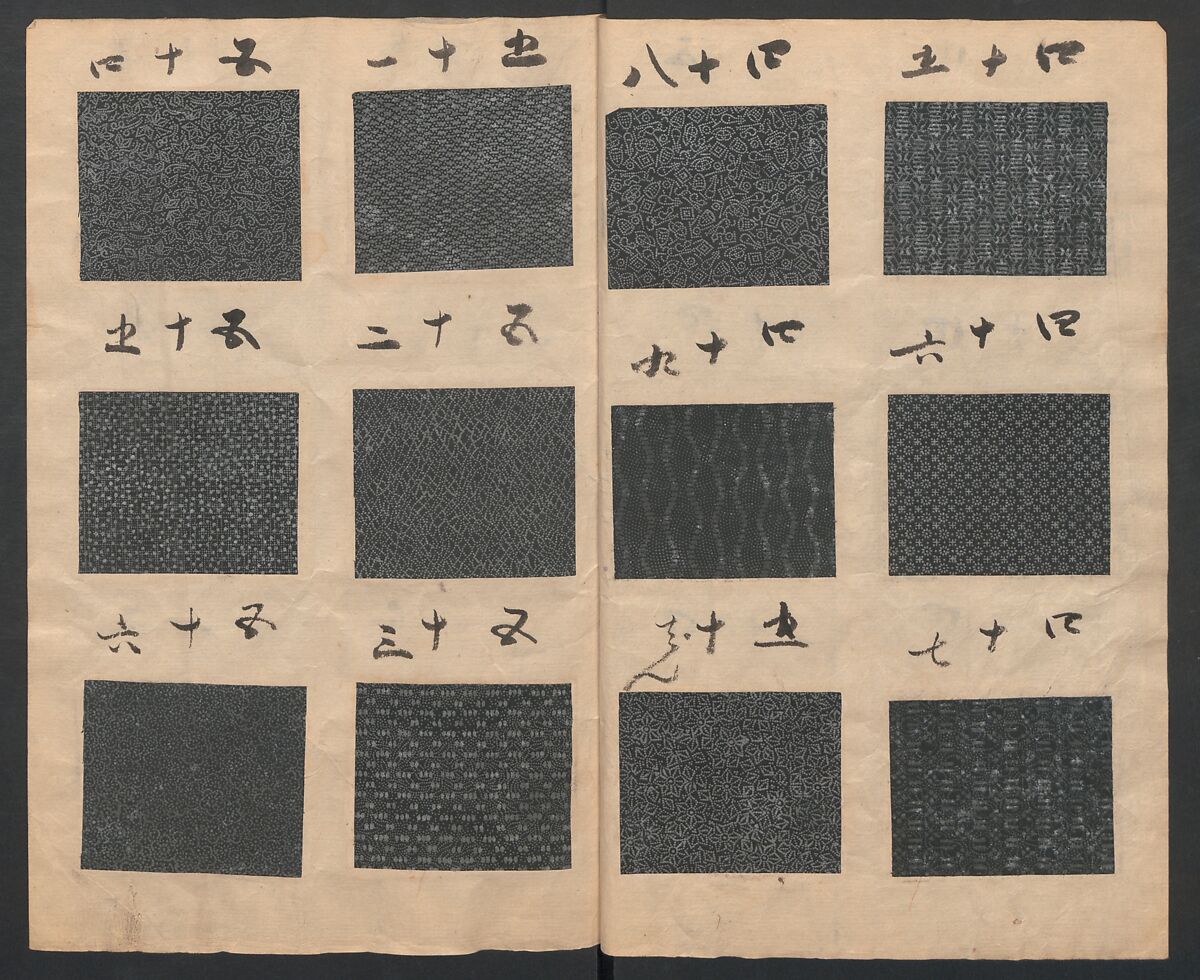 四十五
四十六
四十七
四十八
四十九
五十
五十一
五十二
五十三
五十四
五十五
五十六